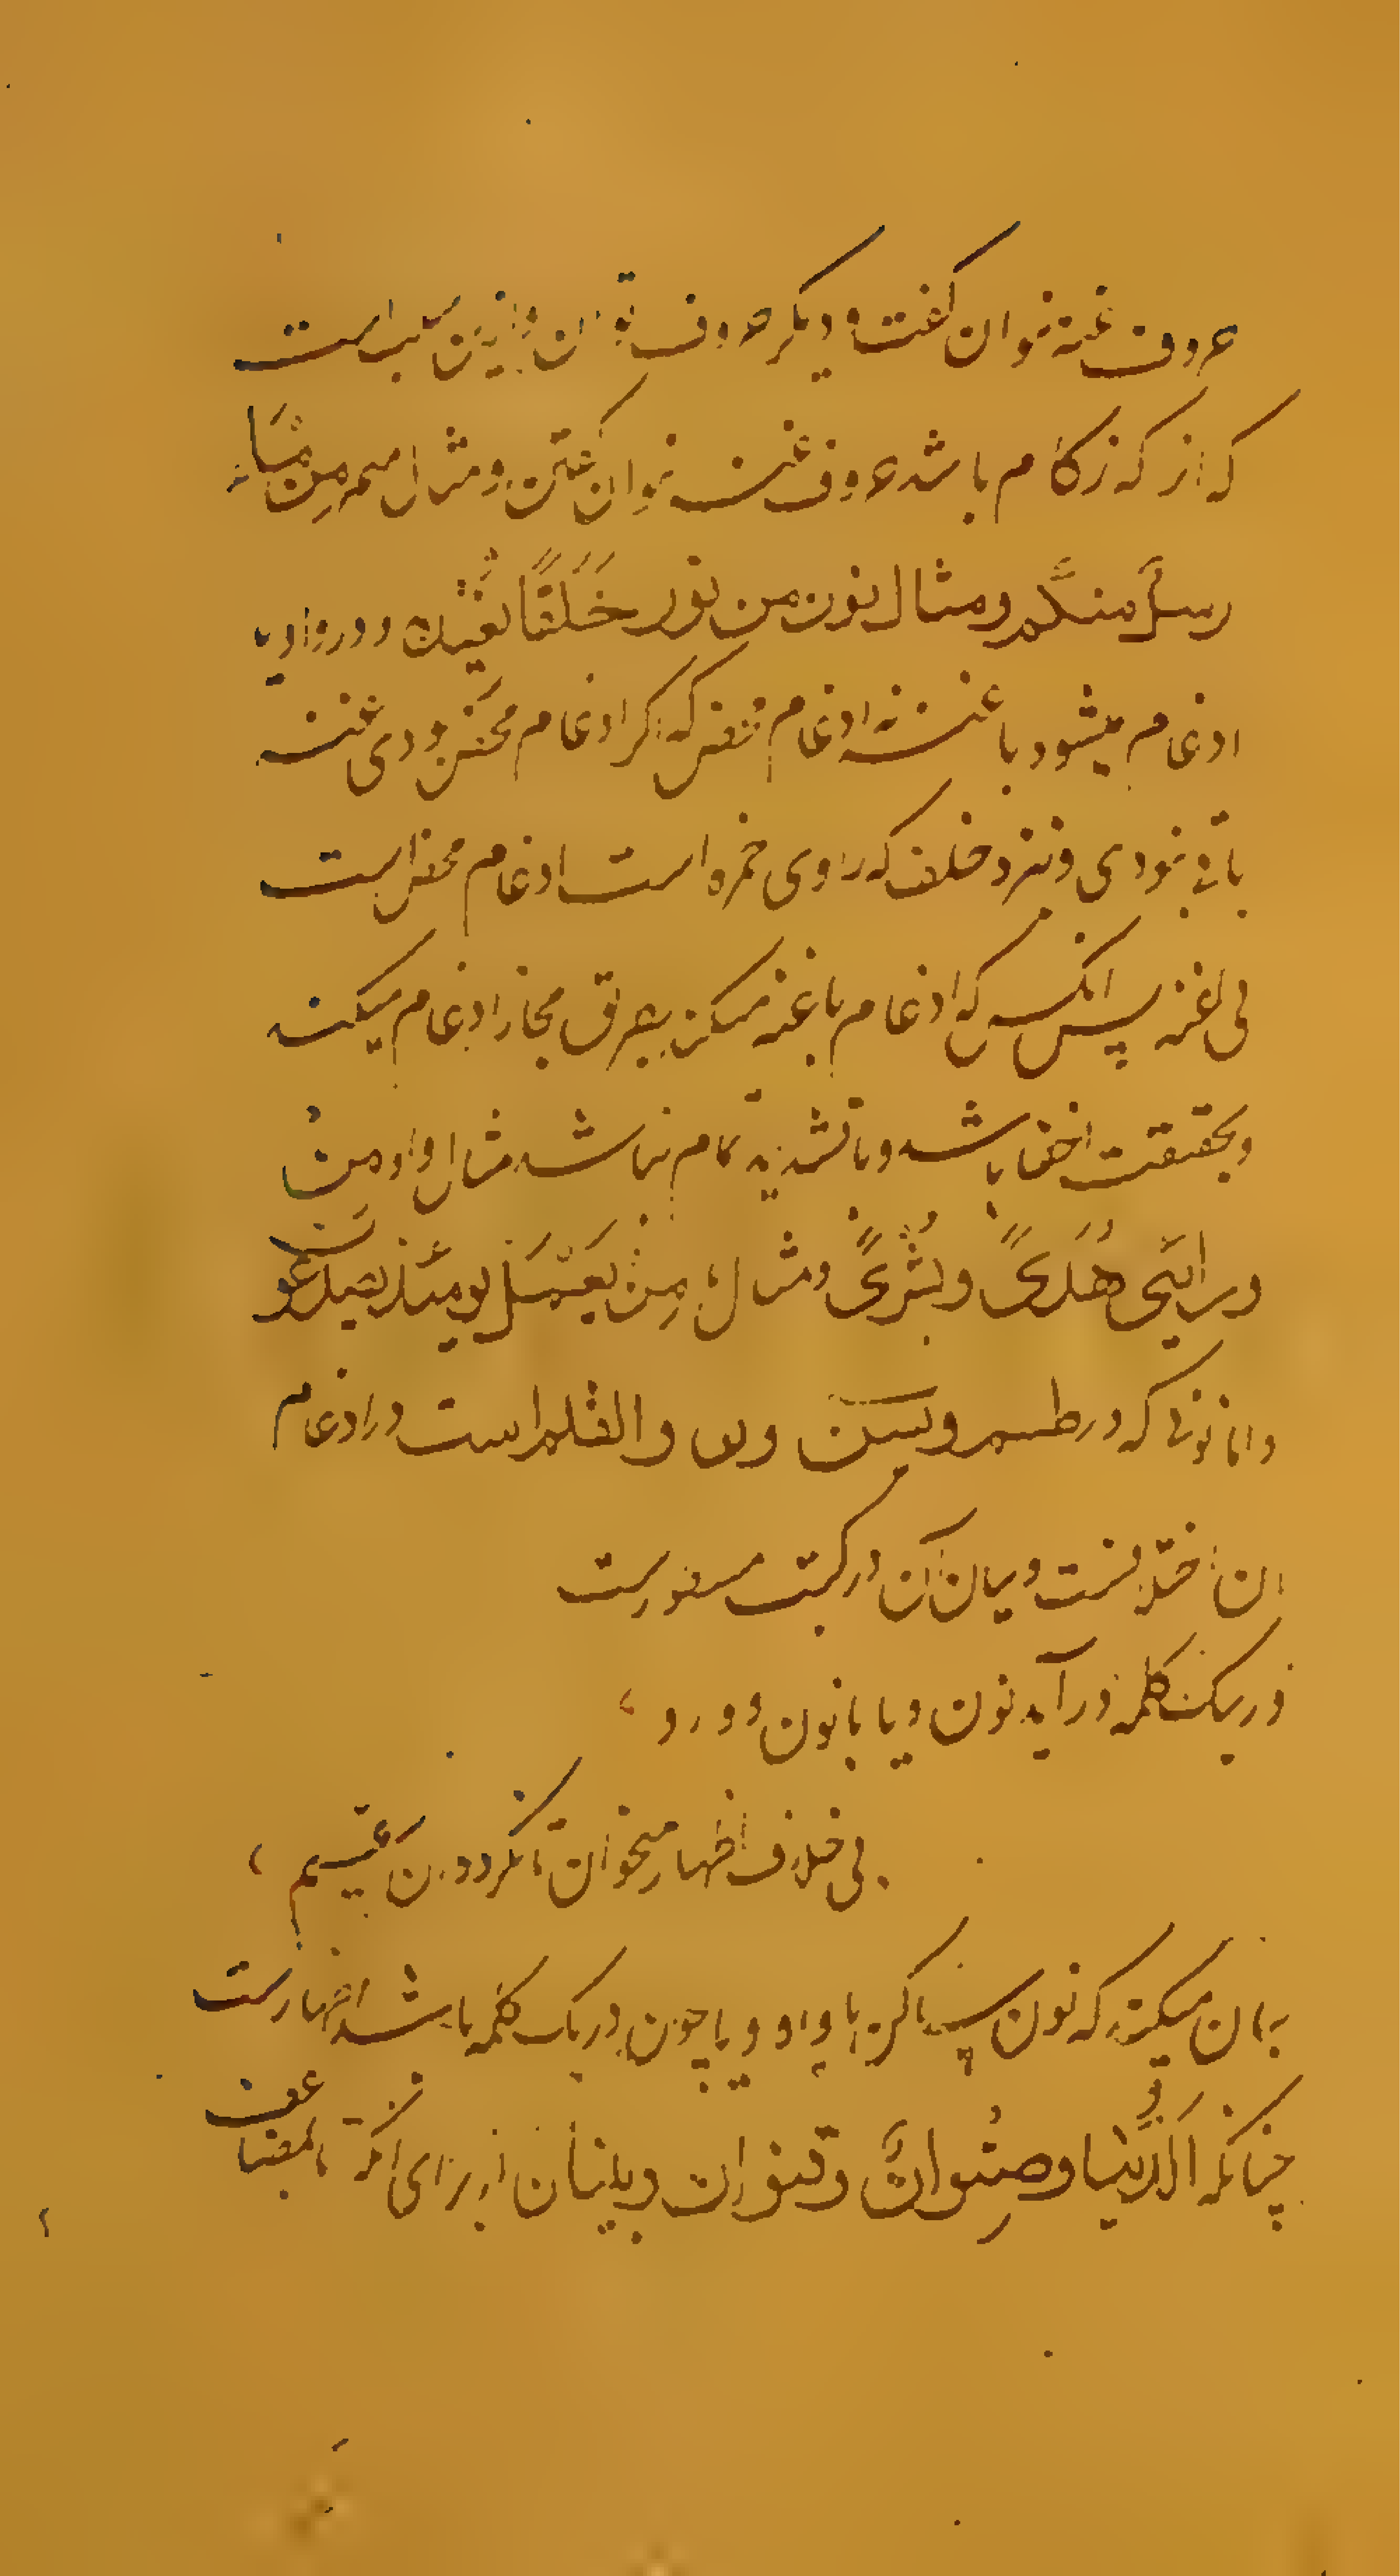 حروف غنه نتوان گفت و دیگر حروف توان و ازین سبب است
که هر که زکام باشد حروف غنه نتوان گفتن و مثال میم مِن مَّاء
رسلٌ منكم ومثال نون من نور خَلَقًا نُّعِيدُهُ و در واو و یا
ادغام میشود با غنه نه ادغام محض که اگر ادغام محض بودی غنه
باقی نبودی و نزد خلف که راوی حمزه است ادغام محض است
بی غنه پس آنکس که ادغام با غنه میکند بطریق مجاز ادغام میکند
و بحقیقت اخفا باشد و با تشدید تمام نباشد مثال واو من
ورائی هُدًى وبُشْرىً و مثال یا مِن يَعْمَل يومئذ يصدعون
و اما نونی که در طسم ويسٓن ون والقلم است در ادغام
آن اختلافست و بیان آن در کتب مسطورست
در یک کلمه درآید نون و یا با نون و او
بی خلاف اظهار میخوان تا نگردد
بیان میکند که نون ساکن با واو و یا چون در یک کلمه باشد اظهارست
چنانکه اَلدُّنْيَا وصِنْوَانٌ وقنوان وبنيان از برای آنکه تا بمضاعف